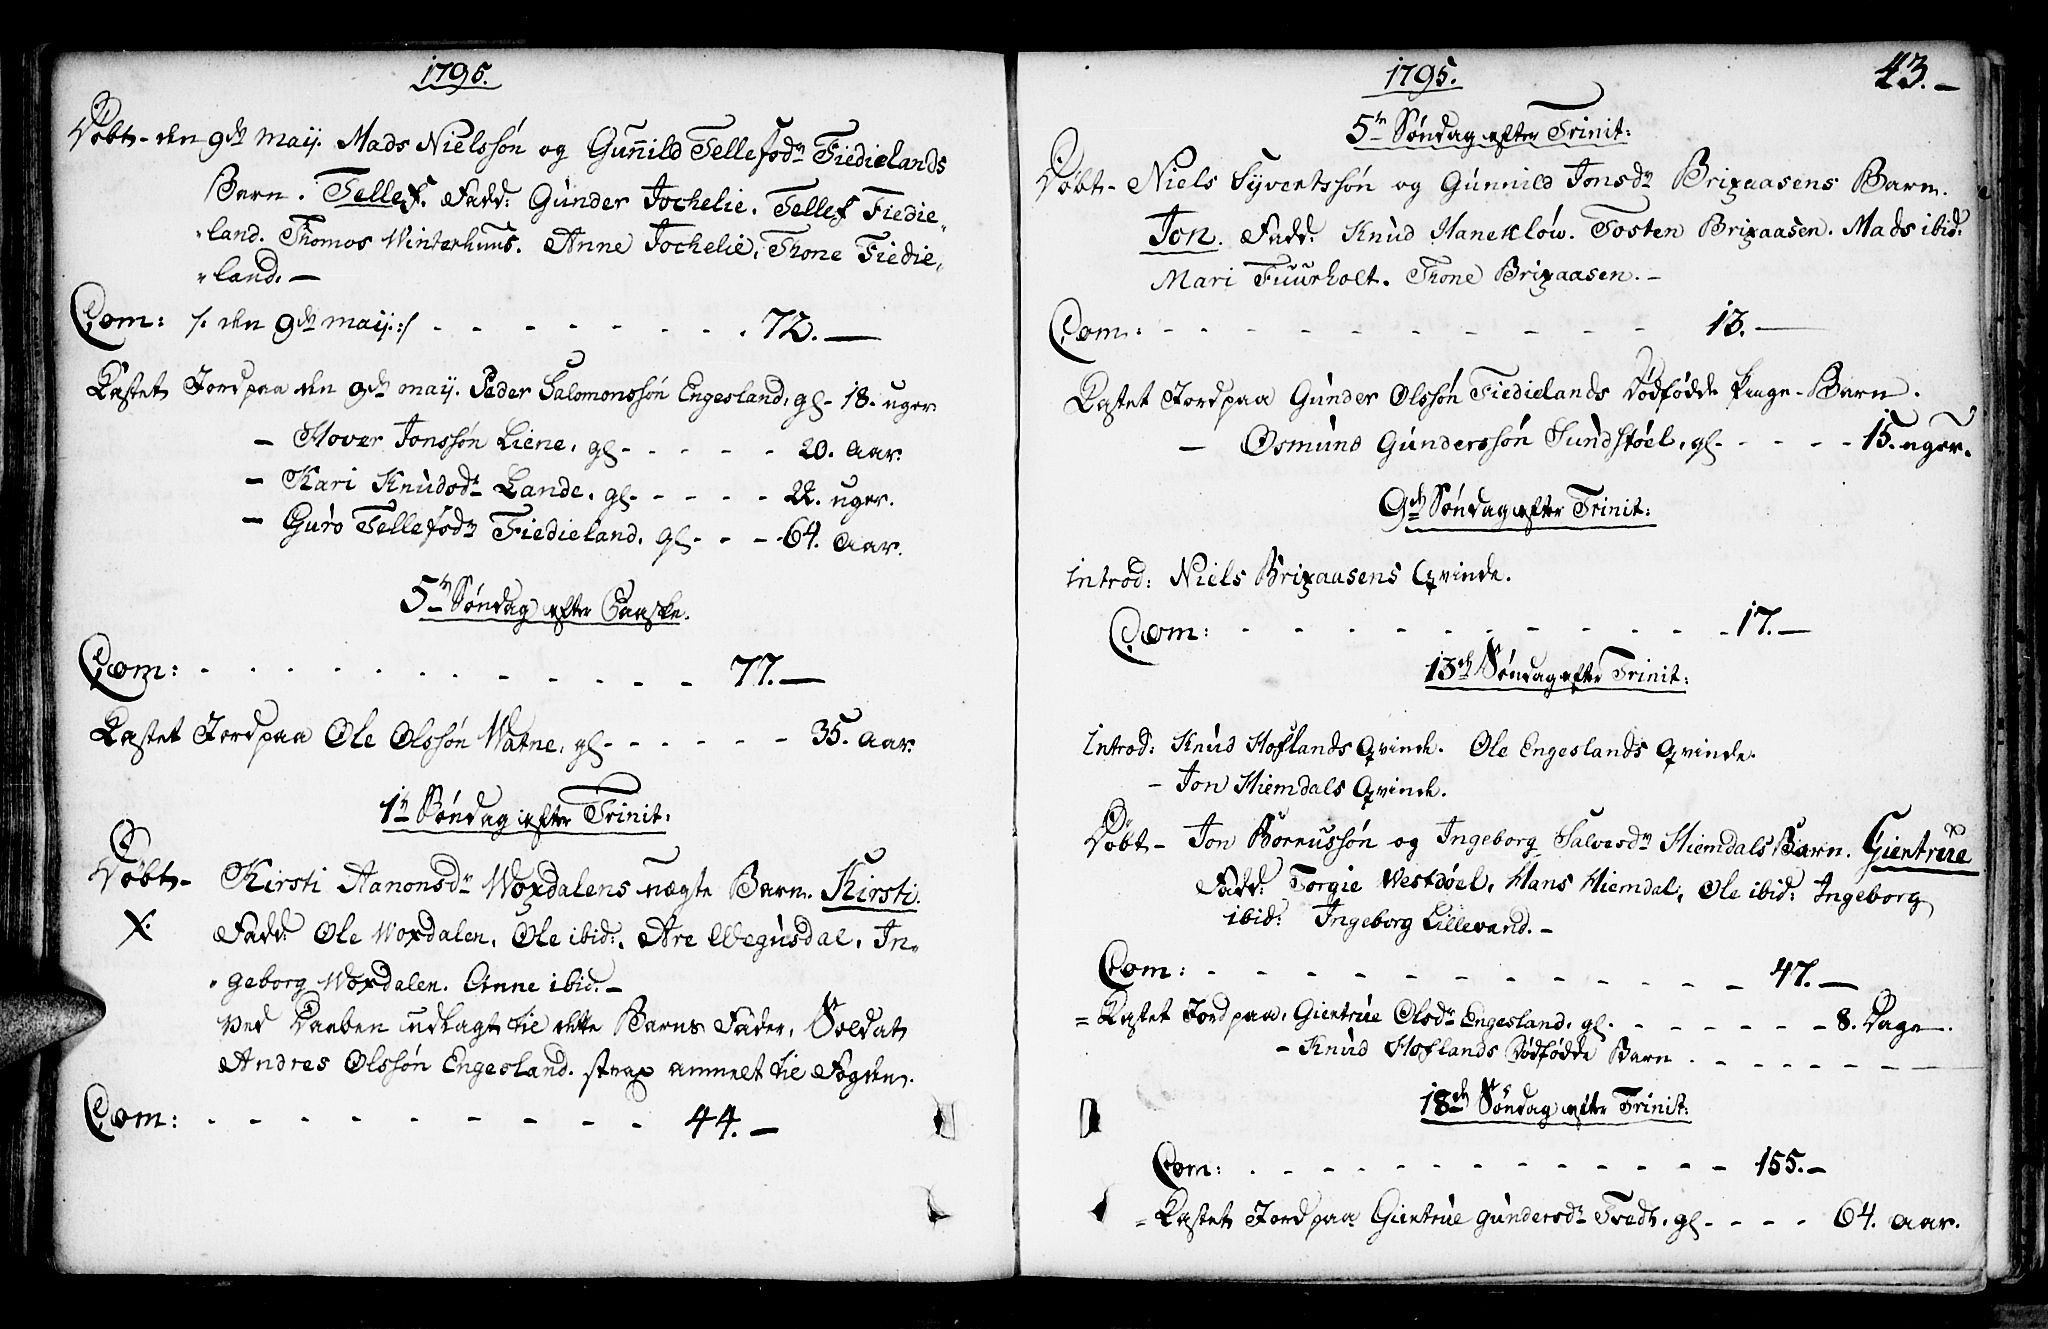 1795.
Döbt - den 9de Maij. Mads Nielssön og Guñild Tellefsdr Fiedielands
Barn. Tellef. Fadd: Gunder Jochelie. Tellef Fiedie„
„land. Thomos Winterhuus. Anne Jochelie. Thone Fiedie„
„land. —
Com: /: den 9de maij :/ - - - - - - - - 72. —
Kastet Jord paa den 9de maij. Peder Salomonssön Engesland, gl - 18. uger
— Hover Jonssön Liene, gl - - - - - 20. Aar.
— Kari Knudsdr Lande, gl - - - - - 22. uger.
— Guro Tellefsdr Fiedieland, gl - - - - 64. Aar.
5te Söndag efter Paaske.
Com: - - - - - - - - - - - - 77. —
Kastet Jord paa Ole Olssön Watne, gl - - - - - - 35. Aar.
1te Söndag efter Trinit:
Döbt - Kirsti Aanonsdr Woxdalens uægte Barn. Kirsti.
X. Fadd: Ole Woxdalen, Ole ibid:, Are Wegusdal, In„
„geborg Woxdalen. Anne ibid. —
Ved Daaben udlagt til dette Barns Fader, Soldat
Andres Olssön Engesland. strax anmelt til Fogden.
Com: - - - - - - - - - - - 44. —
43. —
1795.
5te Söndag efter Trinit:
Döbt - Niels Syvertssön og Gunnild Jonsdr Brixaasens Barn.
Jon. Fadd: Knud Haneklöw. Tosten Brixaasen. Mads ibid:
Mari Fuurholt. Thone Brixaasen. —
Com: - - - - - - - - - - - - 13. —
Kastet Jord paa Gunder Olssön Fiedielands Dödfödde Pige-Barn.
— Osmund Gunderssön Sundstöel, gl - - - - - 15. uger.
9de Söndag efter Trinit:
Introd: Niels Brixaasens Qvinde.
Com: - - - - - - - - - - - 17. —
13de Söndag efter Trinit:
Introd: Knud Hoflands Qvinde. Ole Engeslands Qvinde.
— Jon Hiemdals Qvinde.
Döbt - Jon Börrussön og Ingeborg Salvesdr Hiemdals Barn. Giertrüe
Fadd: Torgie Westdöel, Hans Hiemdal, Ole ibid: Ingeborg
ibid: Ingeborg Lillevand. —
Com: - - - - - - - - - - - - 47. —
= Kastet Jord paa, Giertrüe Olsdr Engesland, gl. - - - - - - - 8. Dage.
— Knud Hoflands Dödfödde Barn - - - - - - - -
18de Söndag efter Trinit:
Com: - - - - - - - - - - - - 155. —
= Kastet Jord paa Giertrüe Gundersdr Tvedt, gl - - - - 64. Aar.